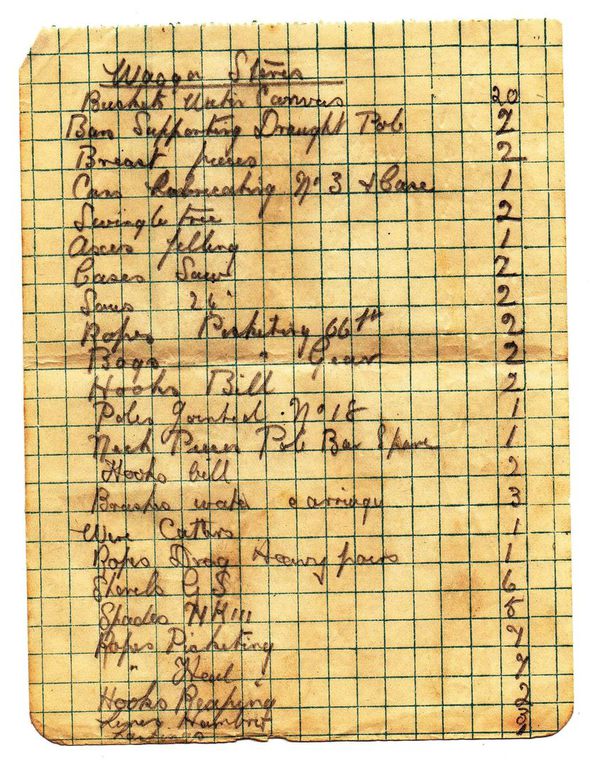 Waggon Stores
Buckets Water Canvas 20
Bars Supporting Draught Pole 2
Breast pieces 2
Cans Lubricating No 3 & Case 1
Swingle tree 2
Axes felling 1
Cases Saw 2
Saws 2
Ropes Picketing 66 ft 2
Bags " Gear 2
Hooks Bill 2
Poles Jointed No 18 1
Neck Pieces Pole Bar Spare 1
Hooks bill 2
Brushes water carriage 3
Wire Cutters 1
Ropes Drag Heavy pairs 1
Shovels G S 6
Spades MK III 5
Ropes Picketing 7
" Heel 7
Hooks Reaping 2
Lines Hambro
Lashings